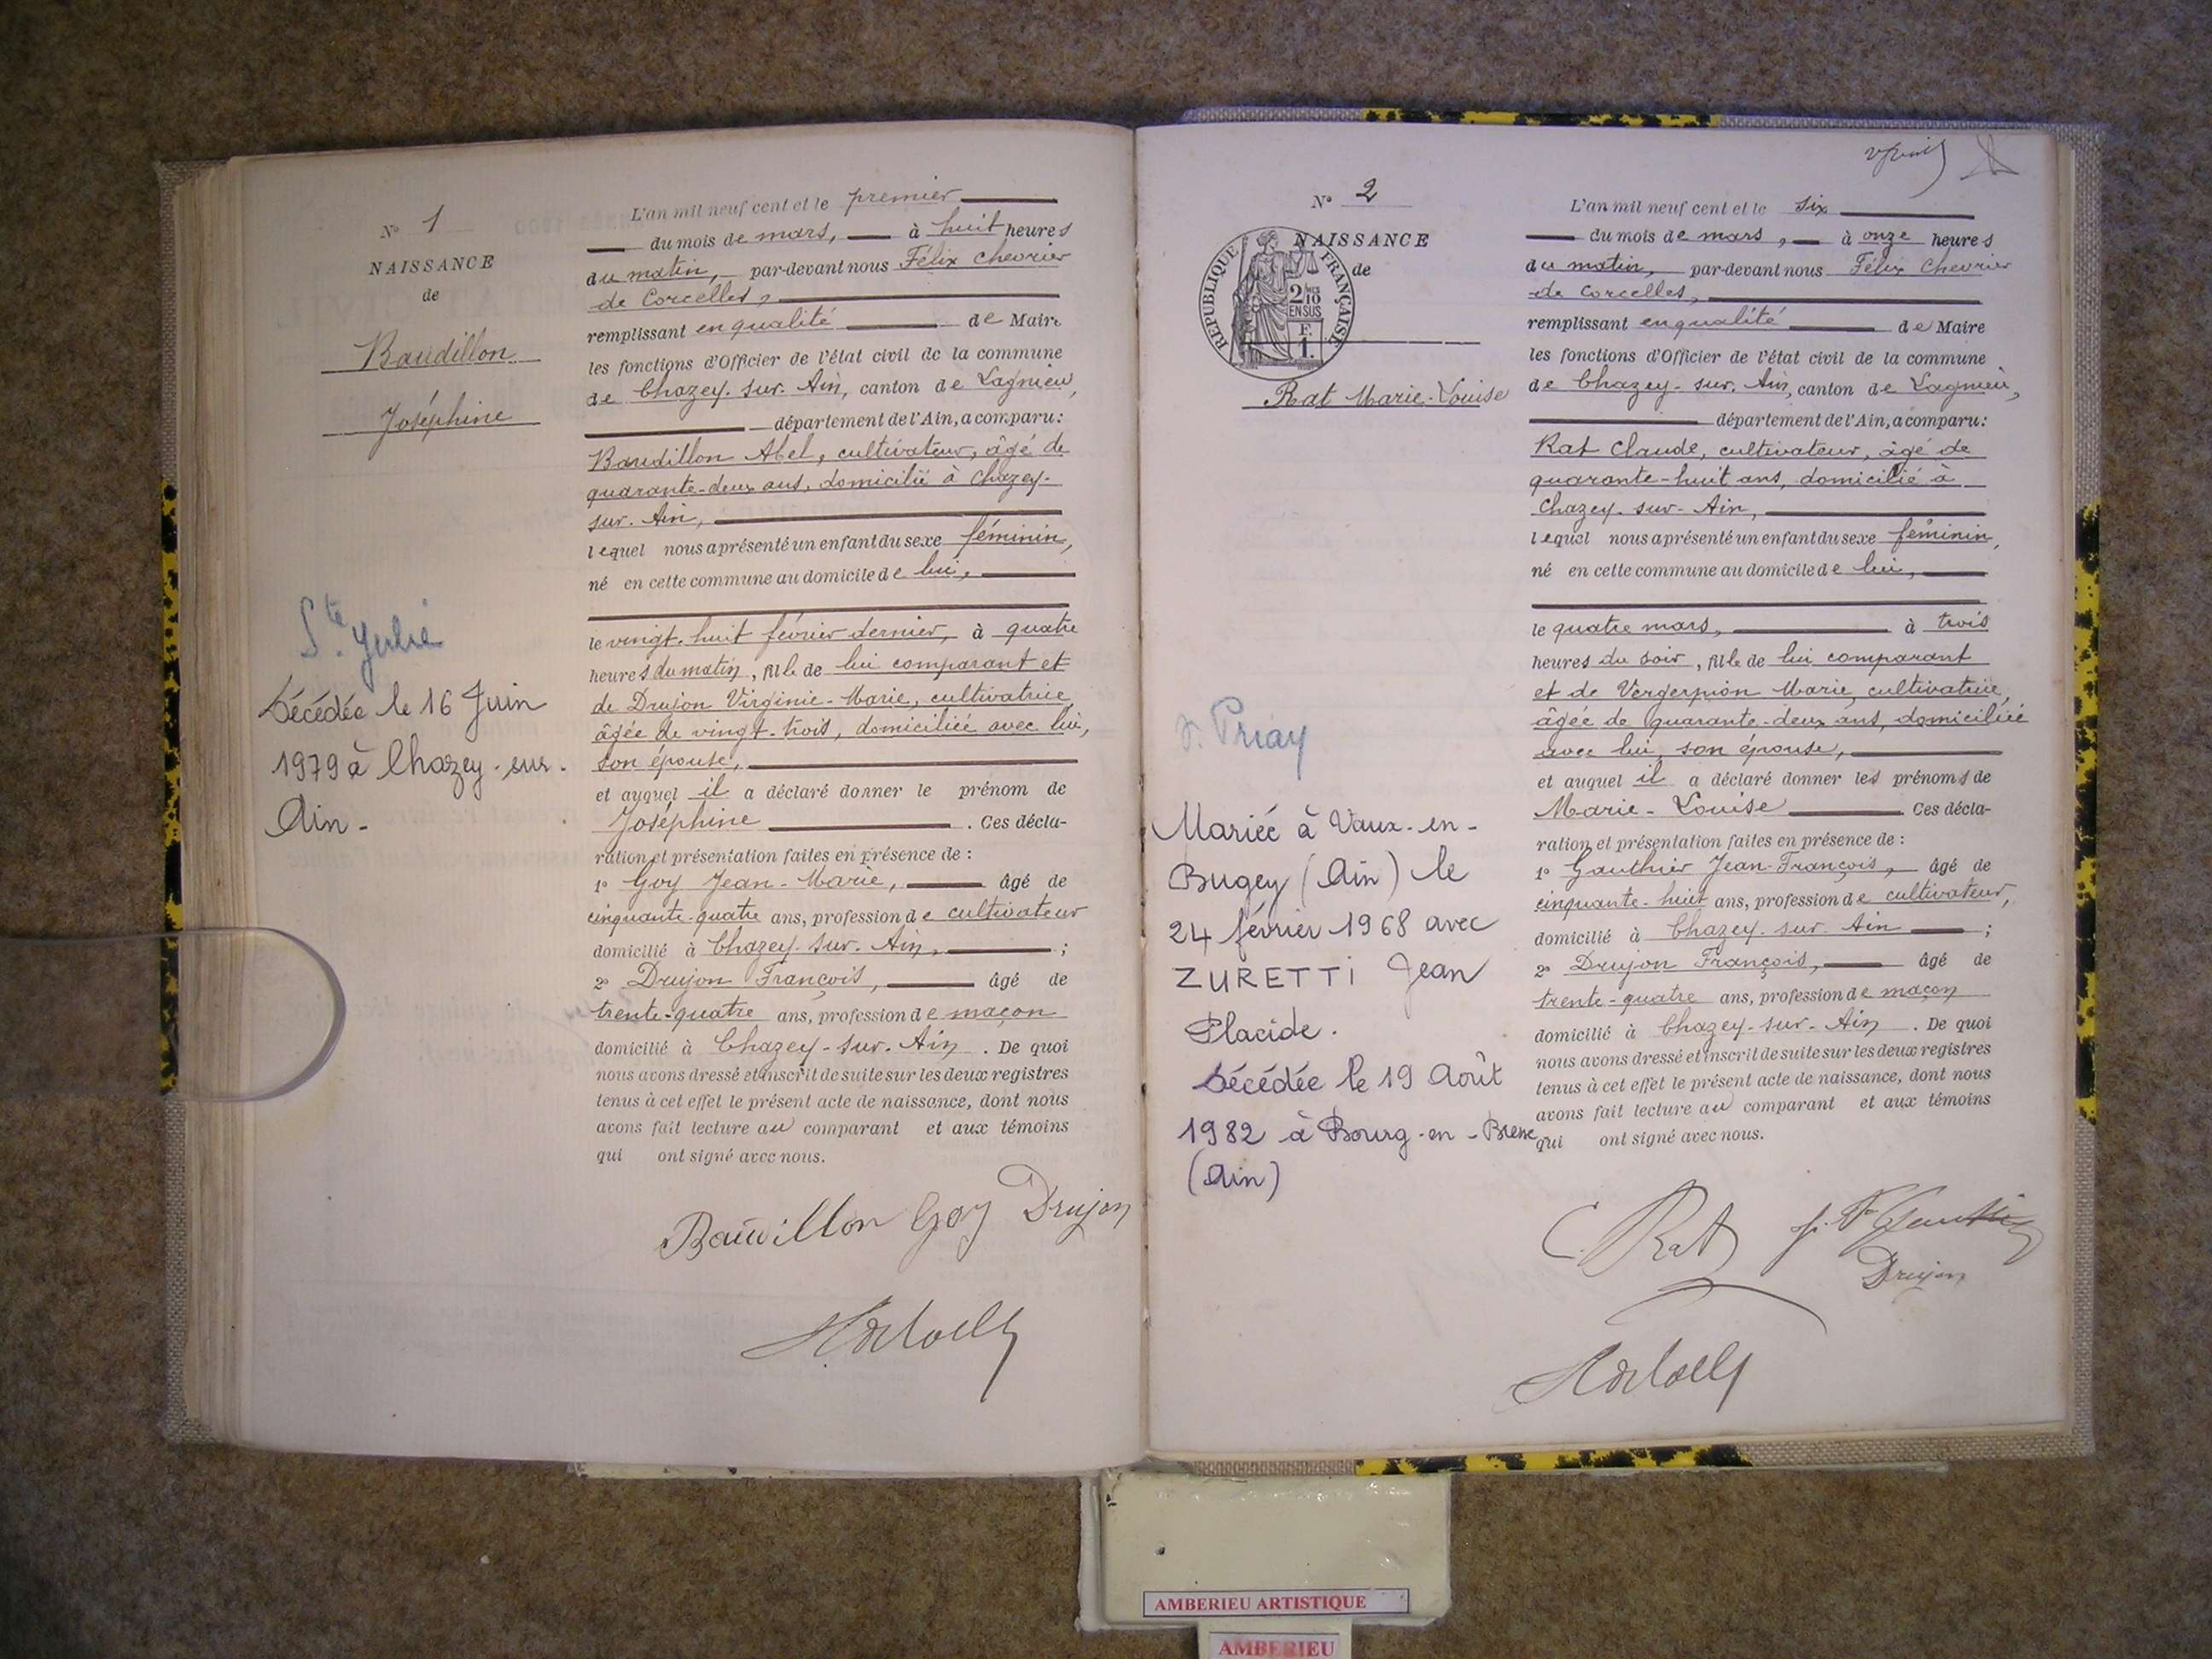 N° 1
NAISSANCE
de
Baudillon
Joséphine
Ste. Julie
Décédée le 16 Juin
1979 à Chazey-sur-
Ain-
L'an mil neuf cent et le premier
du mois de mars, à huit heures
du matin, par-devant nous Félix Chevrier
de Corcelles,
remplissant en qualité de Maire
les fonctions d'Officier de l'état civil de la commune
de Chazey-sur-Ain, canton de Lagnieu,
département de l'Ain, a comparu:
Baudillon Abel, cultivateur, âgé de
quarante-deux ans, domicilié à Chazey-
sur-Ain,
lequel nous a présenté un enfant du sexe féminin,
né en cette commune au domicile de lui,
le vingt-huit février dernier, à quatre
heures du matin, fille de lui comparant et
de Drujon Virginie-Marie, cultivatrice,
âgée de vingt-trois, domiciliée avec lui,
son épouse,
et auquel il a déclaré donner le prénom de
Joséphine. Ces décla-
ration et présentation faites en présence de :
1° Goy Jean-Marie, âgé de
cinquante-quatre ans, profession de cultivateur
domicilié à Chazey-sur-Ain, ;
2° Drujon François, âgé de
trente-quatre ans, profession de maçon
domicilié à Chazey-sur-Ain. De quoi
nous avons dressé et inscrit de suite sur les deux registres
tenus à cet effet le présent acte de naissance, dont nous
avons fait lecture au comparant et aux témoins
qui ont signé avec nous.
Baudillon Goy Drujon
N° 2
NAISSANCE
de
REPUBLIQUE FRANÇAISE
2/10 MES
EN SUS
F.
1.
Rat Marie-Louise
Priay
Mariée à Vaux-en-
Bugey (Ain) le
24 février 1968 avec
ZURETTI Jean
Placide.
Décédée le 19 Août
1982 à Bourg-en-Bresse
(Ain)
L'an mil neuf cent et le six
du mois de mars, à onze heures
du matin, par-devant nous Félix Chevrier
de Corcelles,
remplissant en qualité de Maire
les fonctions d'Officier de l'état civil de la commune
de Chazey-sur-Ain, canton de Lagnieu,
département de l'Ain, a comparu:
Rat Claude, cultivateur, âgé de
quarante-huit ans, domicilié à
Chazey-sur-Ain,
lequel nous a présenté un enfant du sexe féminin,
né en cette commune au domicile de lui,
le quatre mars, à trois
heures du soir, fille de lui comparant
et de Vergerpion Marie, cultivatrice,
âgée de quarante-deux ans, domiciliée
avec lui, son épouse,
et auquel il a déclaré donner les prénoms de
Marie-Louise Ces décla-
ration et présentation faites en présence de :
1° Gauthier Jean-François, âgé de
cinquante-huit ans, profession de cultivateur,
domicilié à Chazey-sur-Ain ;
2° Drujon François, âgé de
trente-quatre ans, profession de maçon
domicilié à Chazey-sur-Ain. De quoi
nous avons dressé et inscrit de suite sur les deux registres
tenus à cet effet le présent acte de naissance, dont nous
avons fait lecture au comparant et aux témoins
qui ont signé avec nous.
C. Rat J. F. Gauthier
Drujon
AMBERIEU ARTISTIQUE
AMBERIEU